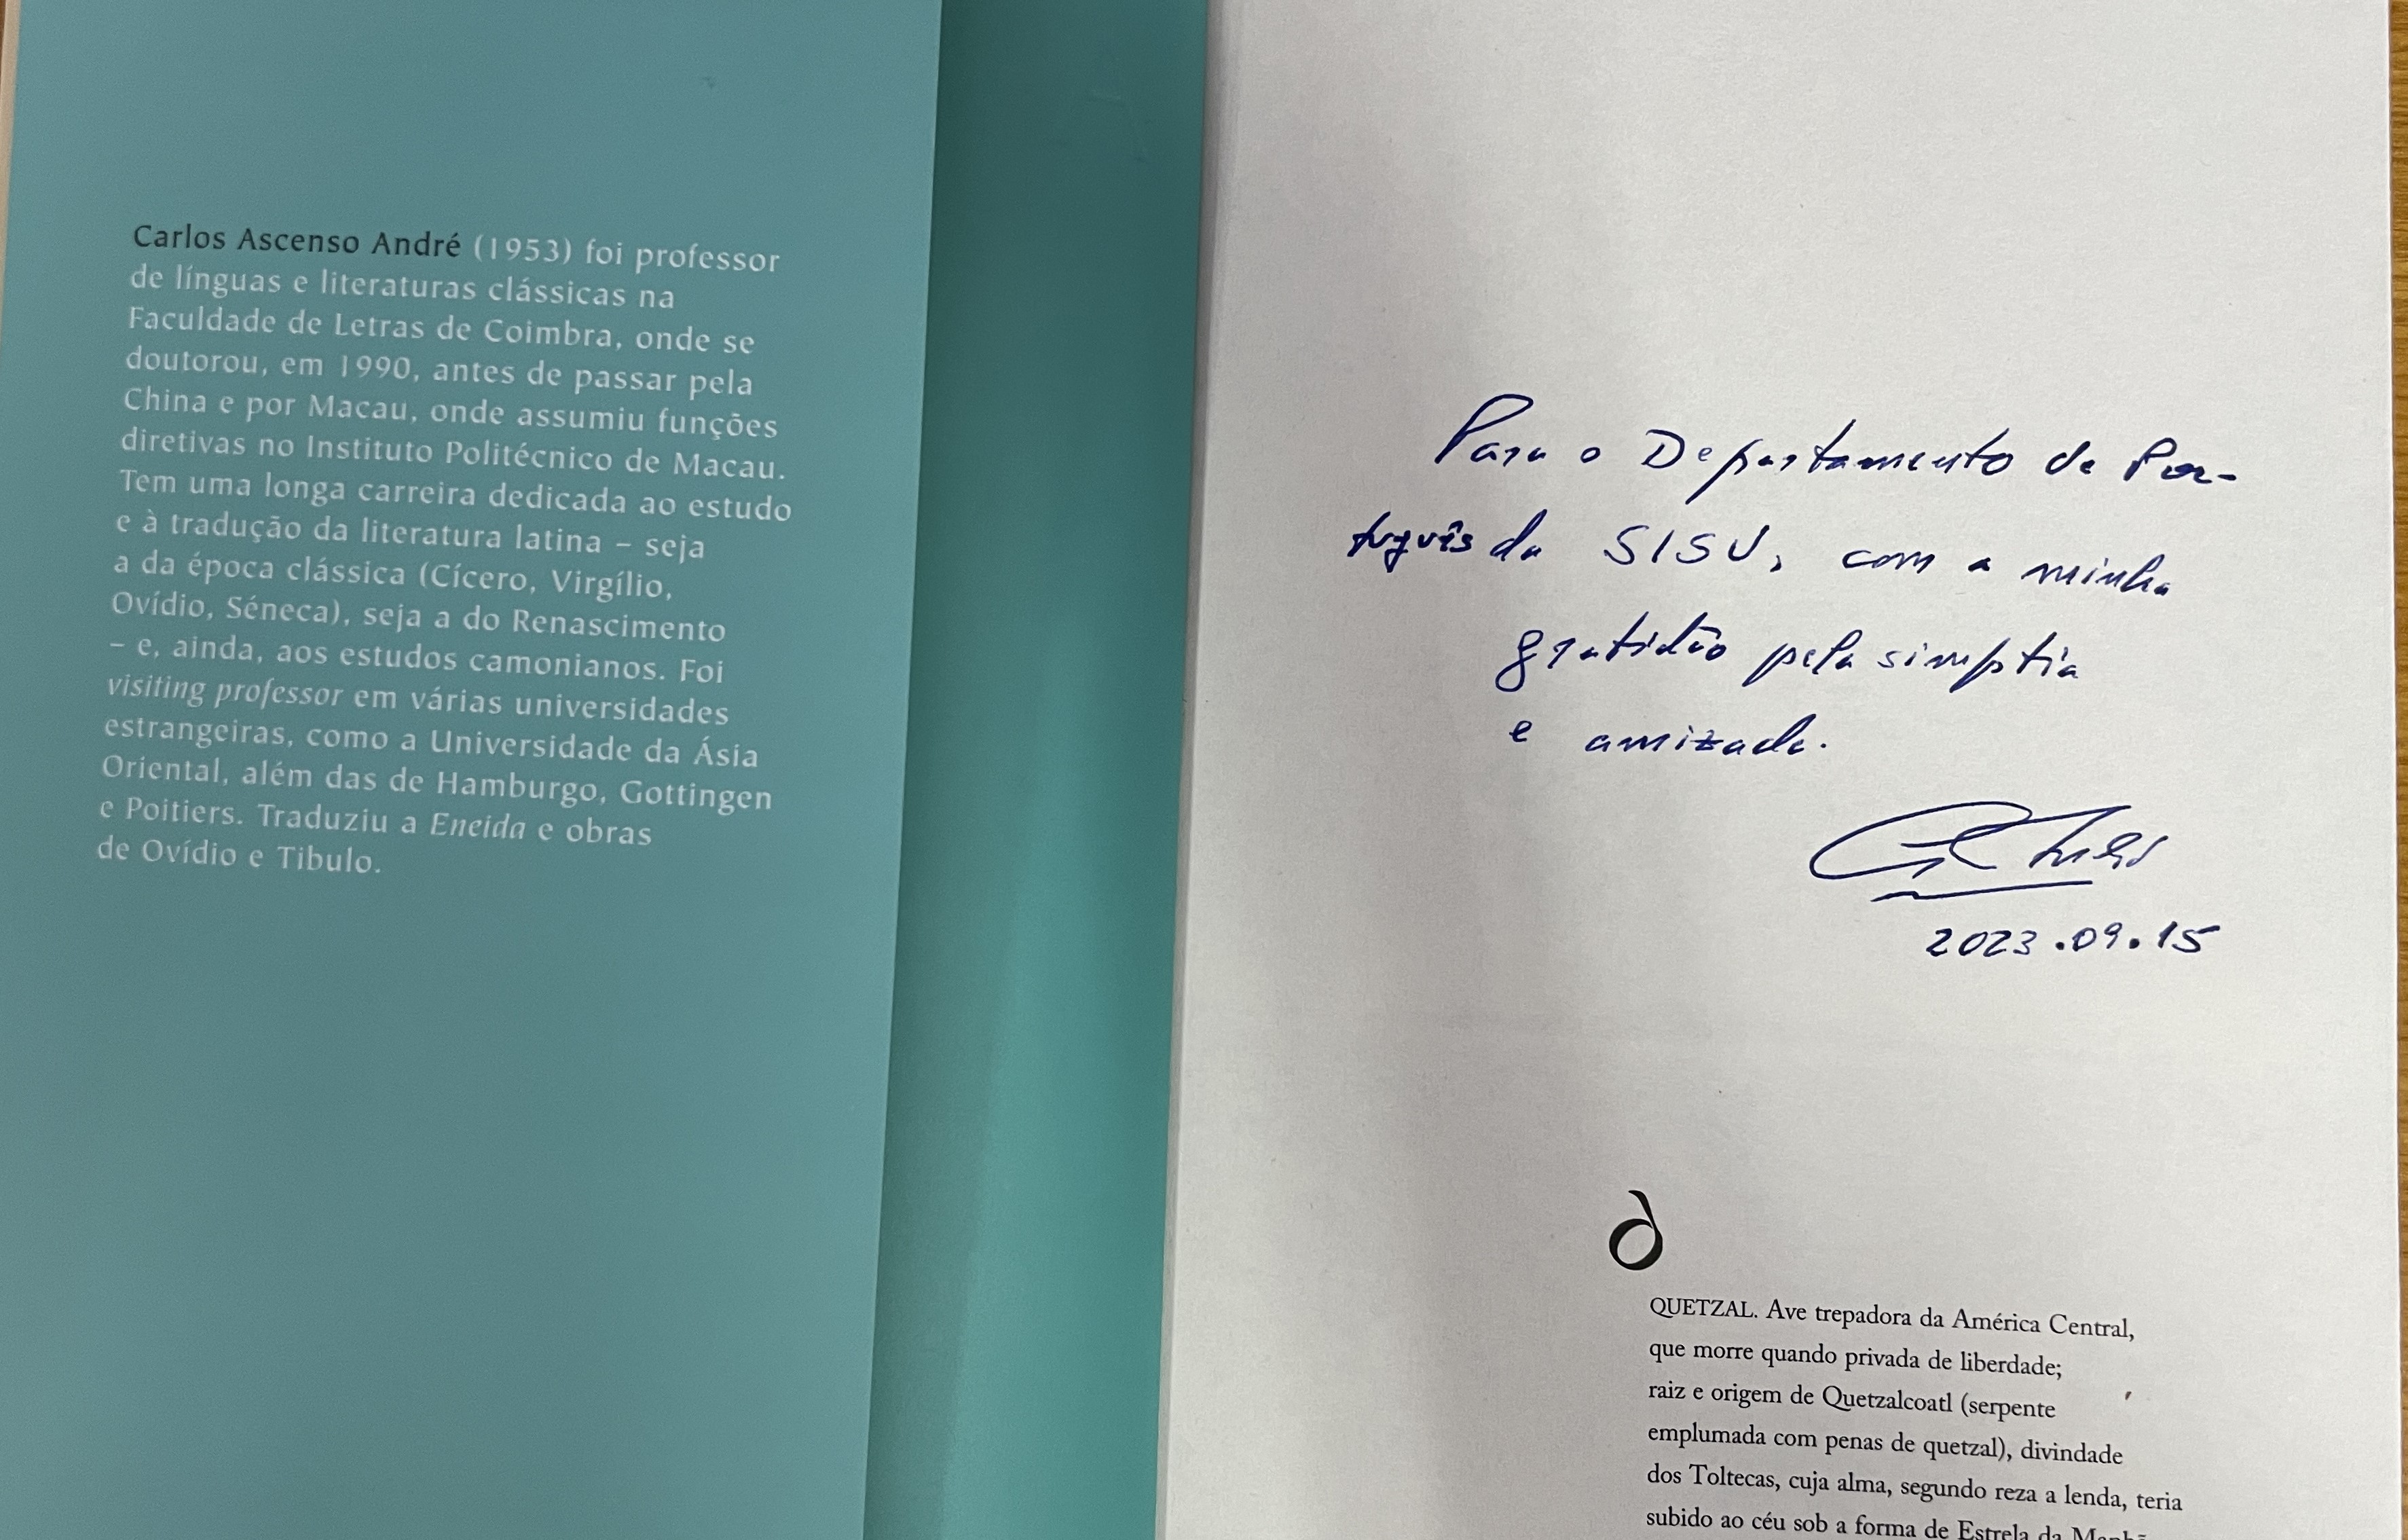 Carlos Ascenso André (1953) foi professor
de línguas e literaturas clássicas na
Faculdade de Letras de Coimbra, onde se
doutorou, em 1990, antes de passar pela
China e por Macau, onde assumiu funções
diretivas no Instituto Politécnico de Macau.
Tem uma longa carreira dedicada ao estudo
e à tradução da literatura latina – seja
a da época clássica (Cícero, Virgílio,
Ovídio, Séneca), seja a do Renascimento
– e, ainda, aos estudos camonianos. Foi
visiting professor em várias universidades
estrangeiras, como a Universidade da Ásia
Oriental, além das de Hamburgo, Gottingen
e Poitiers. Traduziu a Eneida e obras
de Ovídio e Tibulo.
Para o Departamento de Por-
tuguês da SISU, com a minha
gratidão pela simptia
e amizade.
2023.09.15
QUETZAL. Ave trepadora da América Central,
que morre quando privada de liberdade;
raiz e origem de Quetzalcoatl (serpente
emplumada com penas de quetzal), divindade
dos Toltecas, cuja alma, segundo reza a lenda, teria
subido ao céu sob a forma de Estrela da Manhã